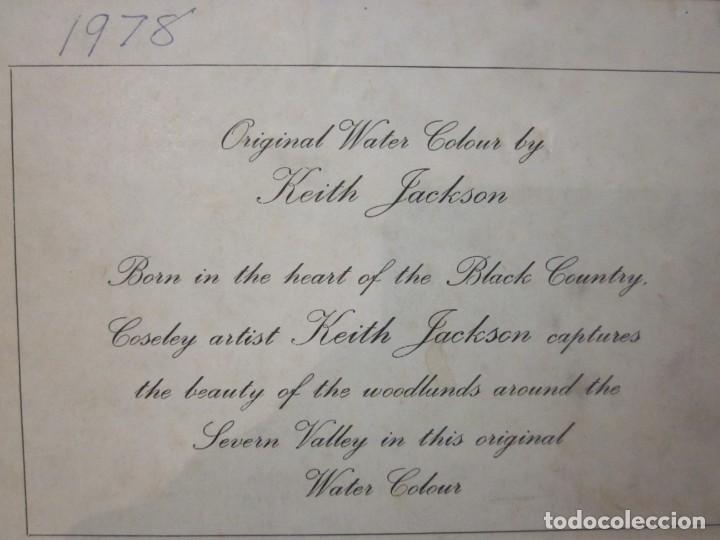 1978
Original Water Colour by
Keith Jackson
Born in the heart of the Black Country,
Coseley artist Keith Jackson captures
the beauty of the woodlands around the
Severn Valley in this original
Water Colour
todocoleccion